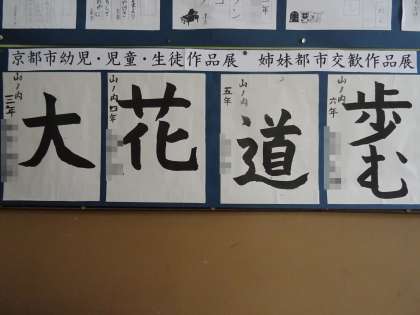 京都市幼児・児童・生徒作品展 姉妹都市交歓作品展
山ノ内 三年
大
山ノ内 四年
花
山ノ内 五年
道
山ノ内 六年
歩む